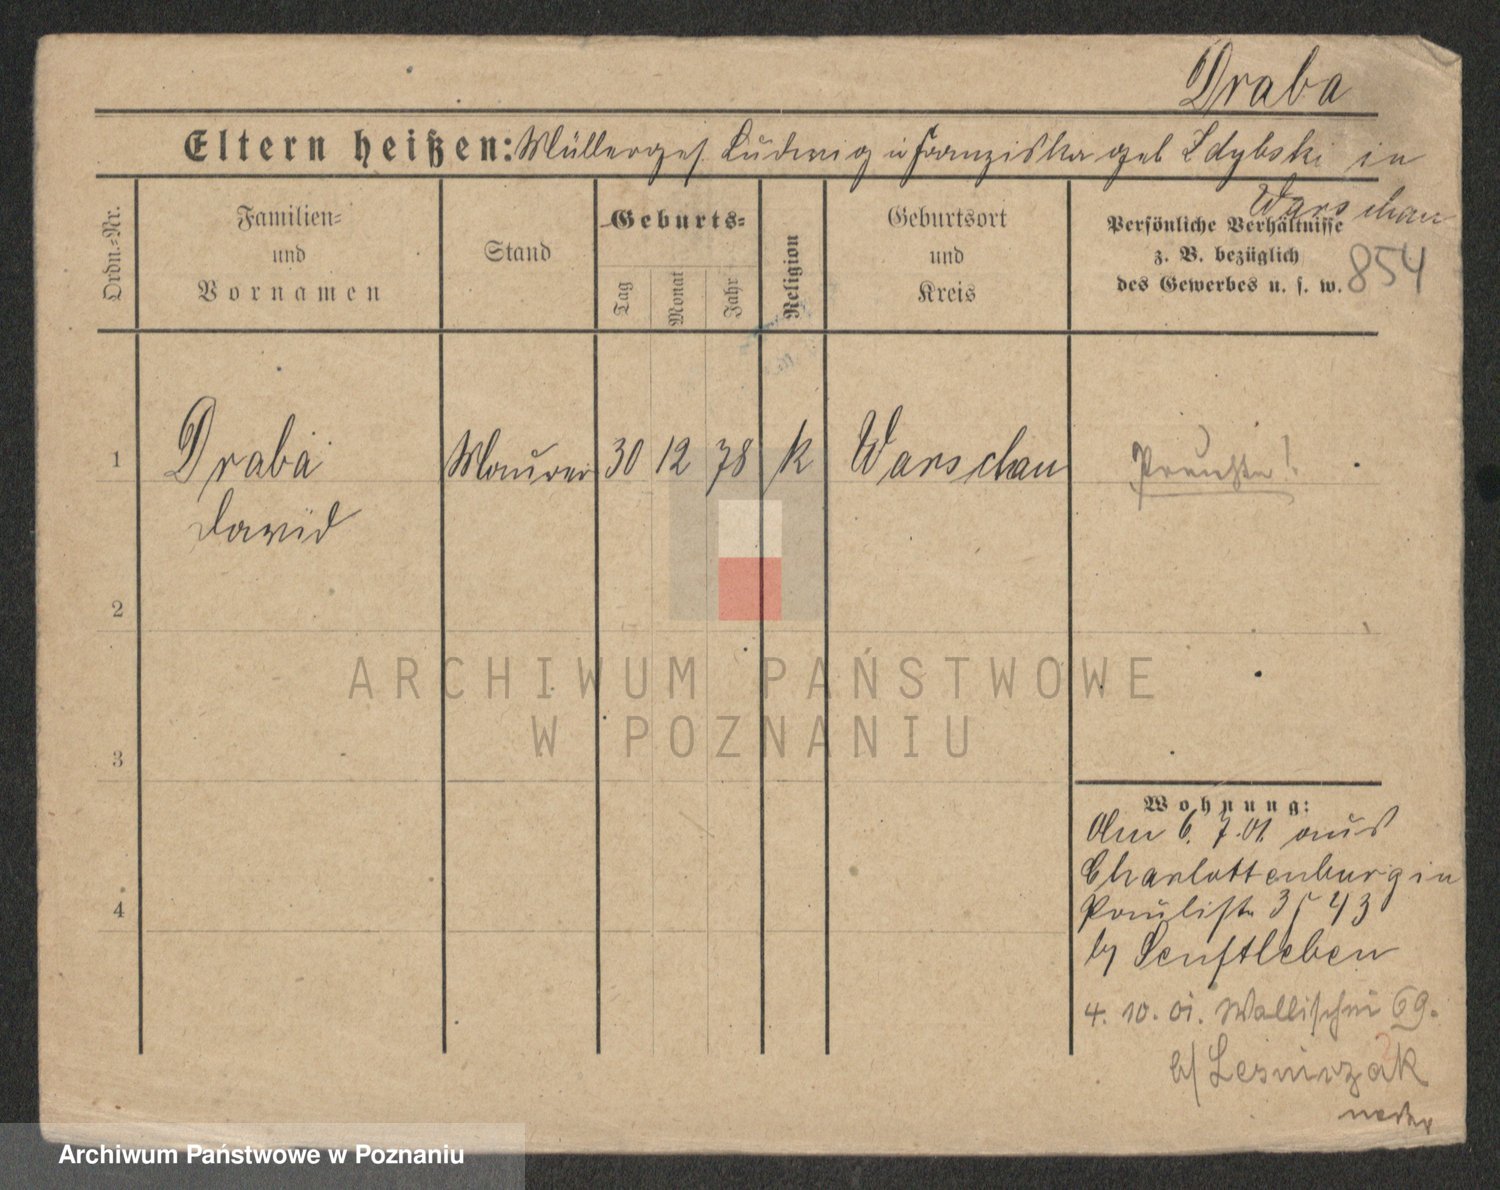 Draba
Eltern heißen: Müllerges. Ludwig u Franziska geb Zdybski in
Warschau
Ordn.-Nr.
Familien-
und
Vornamen
Stand
Geburts-
Tag
Monat
Jahr
Religion
Geburtsort
und
Kreis
Persönliche Verhältnisse
z. B. bezüglich
des Gewerbes u. s. w.
854
1
Draba
David
Maurer
30
12
78
k
Warschau
2
3
4
Wohnung:
Am 6. 7. 01. aus
Charlottenburg in
43
b/ Senftleben
4. 10. 01. Wallischei 69.
b/ Lesniczak
ARCHIWUM PAŃSTWOWE
W POZNANIU
Archiwum Państwowe w Poznaniu